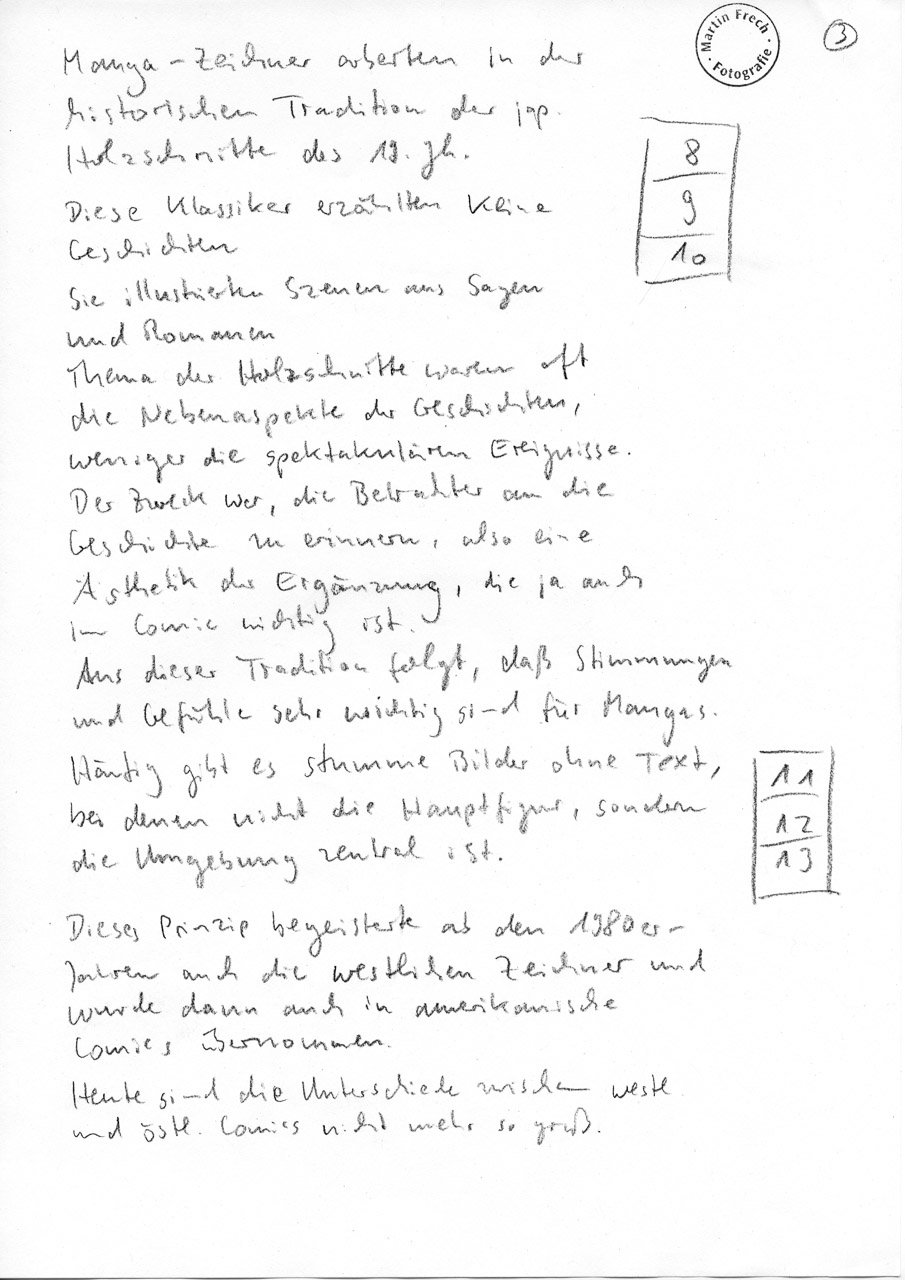 Martin Frech · Fotografie ·
3
Manga-Zeichner arbeiten in der
historischen Tradition der jap.
Holzschnitte des 19. Jh.
8
9
10
Diese Klassiker erzählten keine
Geschichten
Sie illustrierten Szenen aus Sagen
und Romanen
Thema der Holzschnitte waren oft
die Nebenaspekte der Geschichten,
weniger die spektakulären Ereignisse.
Der Zweck war, die Betrachter an die
Geschichte zu erinnern, also eine
Ästhetik der Ergänzung, die ja auch
im Comic wichtig ist.
Aus dieser Tradition folgt, daß Stimmungen
und Gefühle sehr wichtig sind für Mangas.
Häufig gibt es stumme Bilder ohne Text,
bei denen nicht die Hauptfigur, sondern
die Umgebung zentral ist.
11
12
13
Dieses Prinzip begeisterte ab den 1980er-
Jahren auch die westlichen Zeichner und
wurde dann auch in amerikanische
Comics übernommen.
Heute sind die Unterschiede zwischen westl
und östl. Comics nicht mehr so groß.